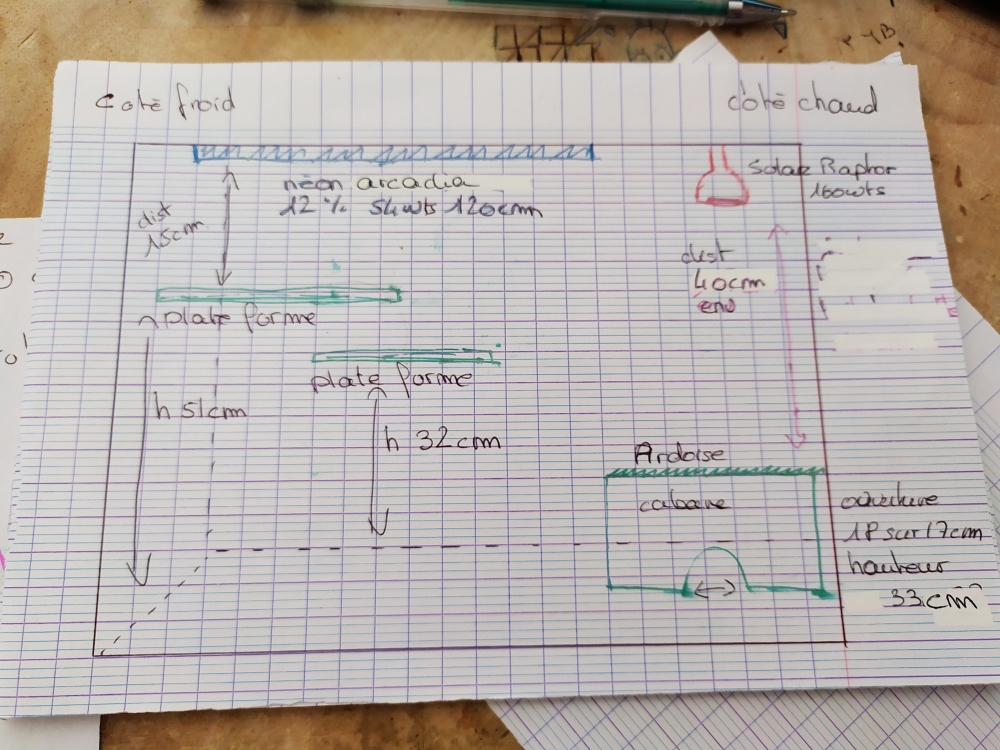 Coté froid
côté chaud
néon arcadia
12 % 54wts 120cm
Solar Raptor
160wts
dist
15cm
dist
40cm
env
plate forme
plate forme
h 51cm
h 32cm
Ardoise
cabane
ouverture
18 sur 17cm
hauteur
33cm